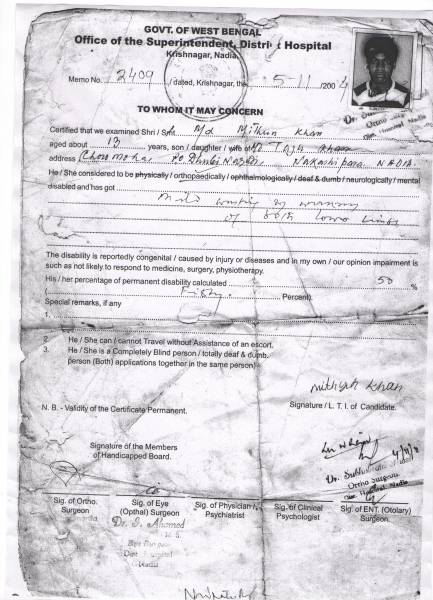 GOVT. OF WEST BENGAL
Office of the Superintendent, District Hospital
Krishnagar, Nadia
Memo No. 2409 / dated, Krishnagar, the 5-11 /2004
TO WHOM IT MAY CONCERN
Certified that we examined Shri / Sm Md Mithun Khan
aged about 13 years, son / daughter / wife of Taju Khan
address Chowmoha, Po. Dhubi Nagadi Nakashipara NADIA
He / She considered to be physically / orthopaedically / ophthalmologically / deaf & dumb / neurologically / mental
disabled and has got
Mild
of both lower limbs
The disability is reportedly congenital / caused by injury or diseases and in my own / our opinion impairment is
such as not likely to respond to medicine, surgery, physiotherapy.
His / her percentage of permanent disability calculated 50 %
( Fifty. Percent).
Special remarks, if any
1.
2. He / She can / cannot Travel without Assistance of an escort.
3. He / She is a Completely Blind person / totally deaf & dumb.
person (Both) applications together in the same person)
mithun khan
N. B. - Validity of the Certificate Permanent.
Signature / L. T. I. of Candidate.
Signature of the Members
of Handicapped Board.
Ortho Surgeon
Sig. of Ortho.
Surgeon
Sig. of Eye
(Opthal) Surgeon
Sig. of Physician /
Psychiatrist
Sig. of Clinical
Psychologist
Sig. of ENT. (Otolary)
Surgeon.
Dr. S. Ahamed
Eye Surgeon
Dist Hospital
Nadia